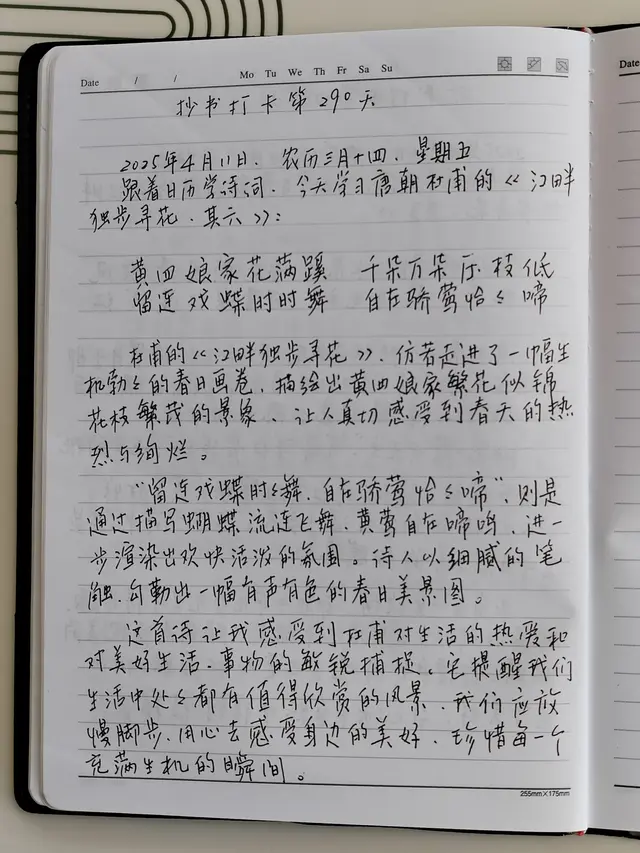 Date / / Mo Tu We Th Fr Sa Su
Date
抄书打卡第290天
2025年4月11日、农历三月十四、星期五
跟着日历学诗词、今天学习唐朝杜甫的《江畔
独步寻花、其六》:
黄四娘家花满蹊 千朵万朵压枝低
留连戏蝶时时舞 自在骄莺恰々啼
杜甫的《江畔独步寻花》、仿若走进了一幅生
机勃々的春日画卷、描绘出黄四娘家繁花似锦
花枝繁茂的景象、让人真切感受到春天的热
烈与绚烂。
“留连戏蝶时々舞、自在骄莺恰々啼”、则是
通过描写蝴蝶流连飞舞、黄莺自在啼鸣、进一
步渲染出欢快活泼的氛围。诗人以细腻的笔
触、勾勒出一幅有声有色的春日美景图。
这首诗让我感受到杜甫对生活的热爱和
对美好生活、事物的敏锐捕捉。它提醒我们
生活中处々都有值得欣赏的风景、我们应放
慢脚步、用心去感受身边的美好、珍惜每一个
充满生机的瞬间。
255mm×175mm